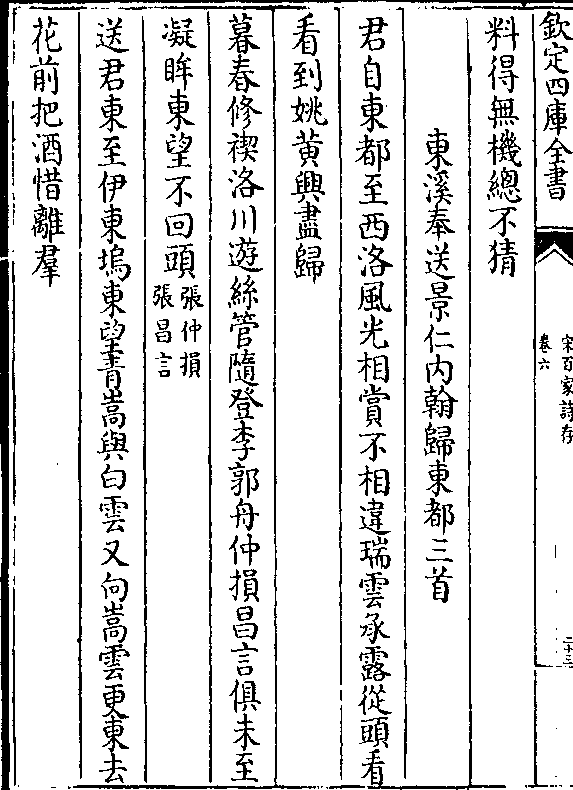 欽定四庫全書
宋百家詩存
卷六
二十三
料得無機總不猜
東溪奉送景仁內翰歸東都三首
君自東都至西洛風光相賞不相違瑞雲承露從頭看
看到姚黄興盡歸
暮春修禊洛川遊絲管隨登李郭舟仲損昌言俱未至
凝眸東望不回頭張仲損
張昌言
送君東至伊東塢東望青嵩與白雲又向嵩雲更東去
花前把酒惜離羣